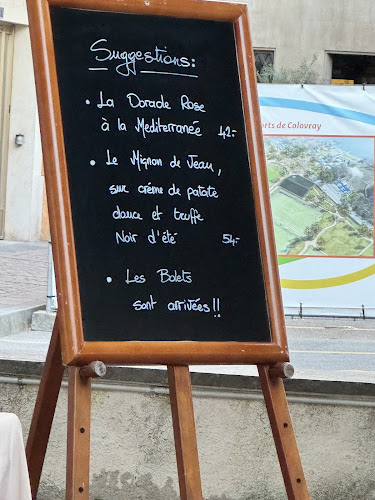 Suggestions:
• La Dorade Rose
à la Mediterranée 42.-
• Le Mignon de Veau,
sur crème de patate
douce et truffe
Noir d'été 54.-
• Les Bolets
sont arrivées!!
orts de Colovray